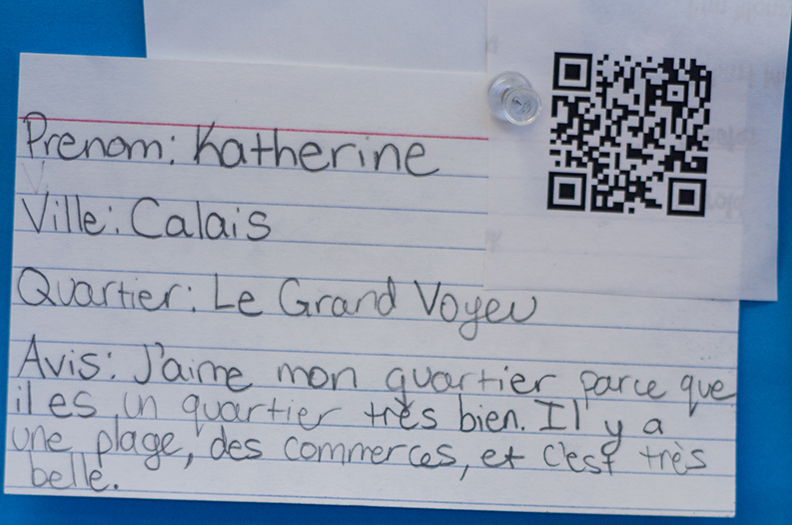 Prenom: Katherine
Ville: Calais
Quartier: Le Grand Voyeu
Avis: J'aime mon quartier parce que
il es un quartier très bien. Il y a
une plage, des commerces, et c'est très
belle.